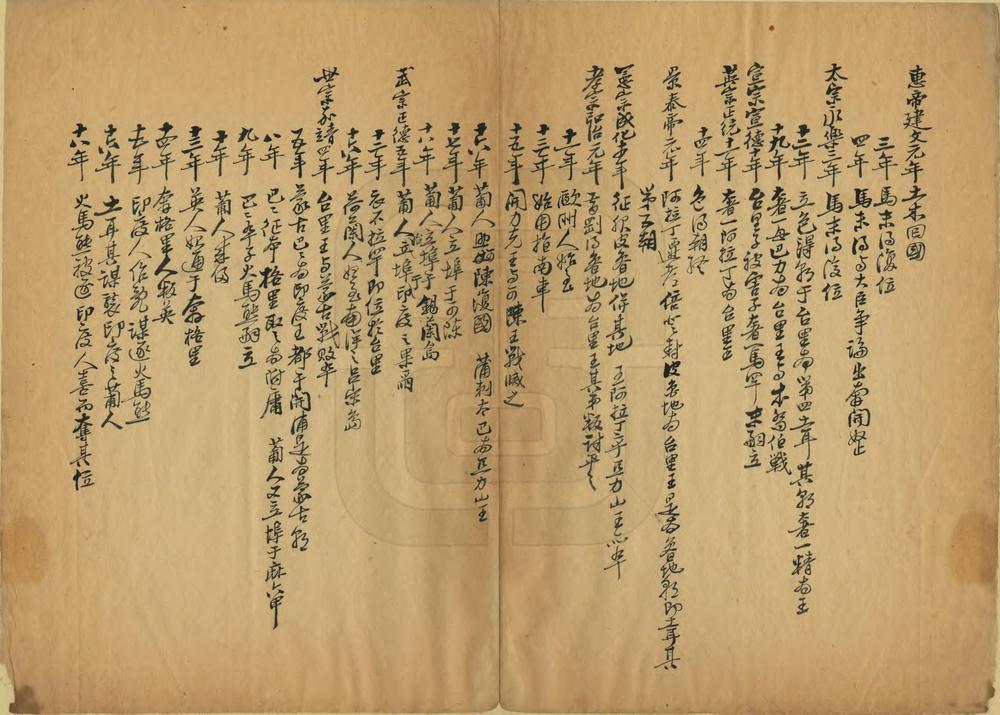 惠帝建文元年 土木回國
三年 馬木得復位
四年 馬木得与大臣爭論出奔開奴止
太宗永樂三年 馬木得復位
十二年 立色得朝于台里為第四土耳其朝 奢一精為王
十九年 奢母巴力為台里王与木部伯戰
宣宗宣德十年 台里王被害子奢一馬罕 嗣立
英宗正統十一年 奢一阿拉丁為台里王
十四年 色得朝終
景泰帝元年 阿拉丁 封 地為台里王是為 地朝即土耳其第五朝
憲宗成化十五年 征服 地併其地 王阿拉丁卒 力山王
孝宗弘治元年 地為台里王其弟叛討平之
十一年 歐洲人始至
十三年 始用指南車
十五年 開力克王与可陳王戰滅之
十六年 葡人 可陳復國 蒲剌木巴為 力山王
十七年 葡人立埠于可陳
十八年 葡人立埠于錫蘭島
武宗正德五年 葡人立埠于印度之果爾
十二年 衣不拉罕即位於台里
十六年 荷蘭人始至南洋之呂宋島
世宗嘉靖四年 台里王与蒙古戰敗卒
五年 蒙古巴 為印度王都于開浦是為蒙古朝
八年 巴 征 布格里取之為附庸 葡人又立埠于麻六甲
九年 巴 卒子火馬熊嗣立
十年 葡人來侵
十三年 英人始通于奔格里
十四年 奔格里人叛英
十五年 印度人作亂謀逐火馬熊
十六年 土耳其謀襲印度之葡人
十八年 火馬熊被逐印度人喜而奪其位